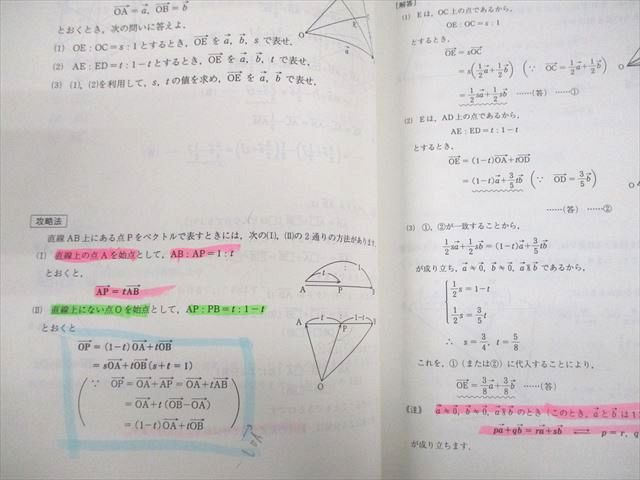 OA = a, OB = b
とおくとき，次の問いに答えよ．
(1) OE：OC＝s：1とするとき，OE を a, b, s で表せ．
(2) AE：ED＝t：1−tとするとき，OE を a, b, t で表せ．
(3) (1)，(2)を利用して，s, t の値を求め，OE を a, b で表せ．
a
攻略法
直線 AB 上にある点 P をベクトルで表すときには，次の(I)，(II)の2通りの方法があります．
(I) 直線上の点 A を始点として，AB：AP＝1：t
とおくと，
AP＝tAB
(II) 直線上にない点 O を始点として，AP：PB＝t：1−t
とおくと
OP＝(1−t)OA＋tOB
＝sOA＋tOB (s＋t＝1)
(∵ OP＝OA＋AP＝OA＋tAB
＝OA＋t(OB−OA)
＝(1−t)OA＋tOB)
A t P
A t 1−t P O
[解答]
(1) E は，OC 上の点であるから，
OE：OC＝s：1
とするとき，
OE＝sOC
＝s(1/2 a＋1/2 b) (∵ OC＝1/2 a＋1/2 b)
＝1/2 sa＋1/2 sb ……(答) ……①
(2) E は，AD 上の点であるから，
AE：ED＝t：1−t
とするとき，
OE＝(1−t)OA＋tOD
＝(1−t)a＋3/5 tb (∵ OD＝3/5 b)
……(答) ……②
(3) ①，②が一致することから，
1/2 sa＋1/2 sb＝(1−t)a＋3/5 tb
が成り立ち，a≠0, b≠0, a∦b であるから，
1/2 s＝1−t
1/2 s＝3/5 t
∴ s＝3/4, t＝5/8
これを，①（または②）に代入することにより，
OE＝3/8 a＋3/8 b ……(答)
《注》 a≠0, b≠0, a∦b のとき（このとき，a と b は1
pa＋qb＝ra＋sb ⟺ p＝r, q
が成り立ちます．